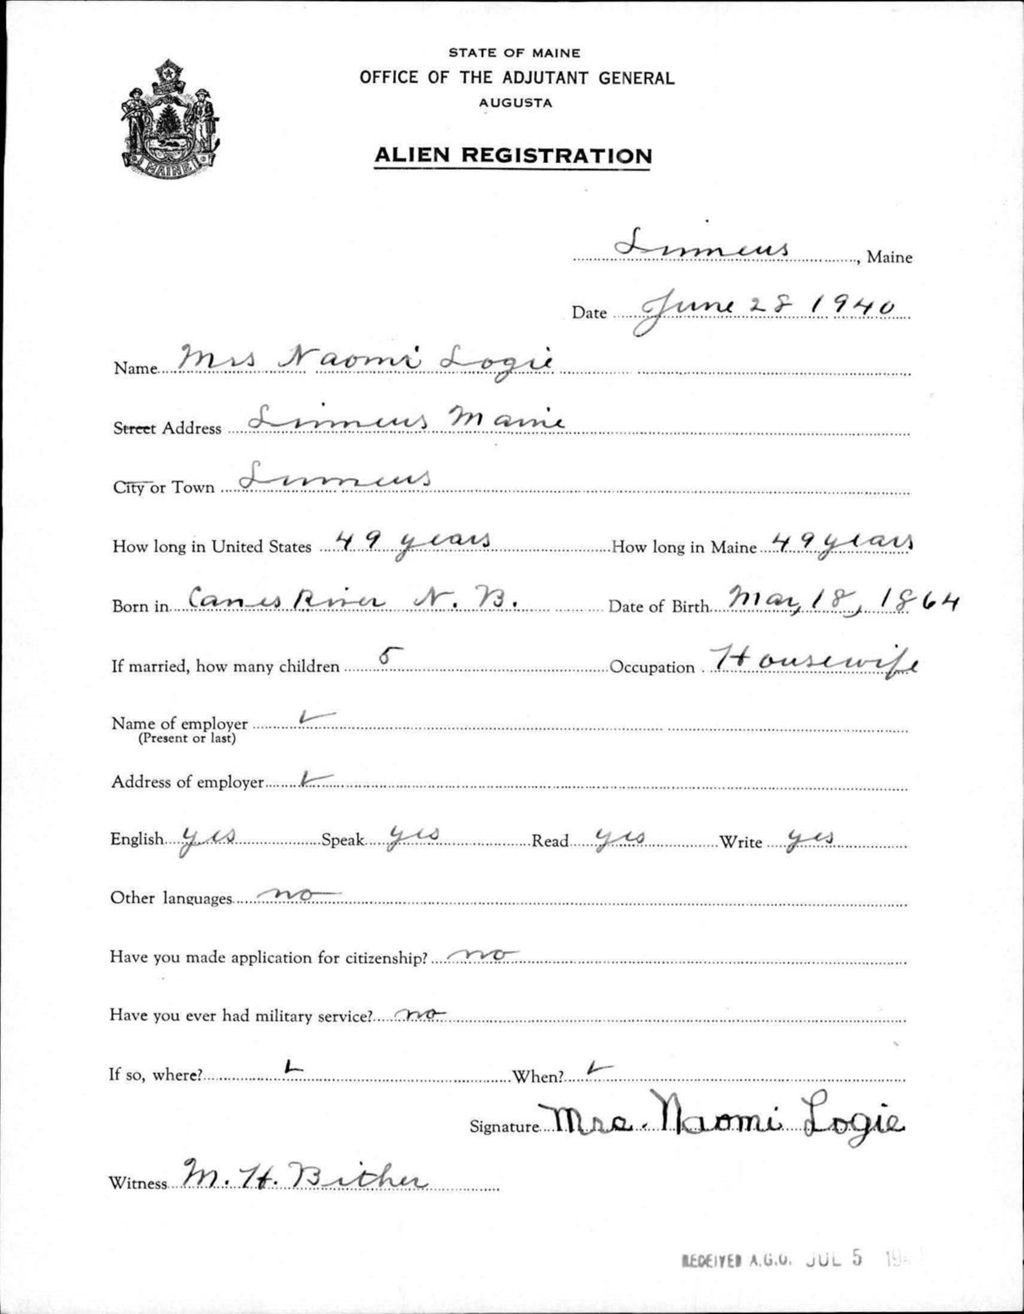 STATE OF MAINE
OFFICE OF THE ADJUTANT GENERAL
AUGUSTA
ALIEN REGISTRATION
MAINE
Linneus, Maine
Date June 28 1940
Name Mrs Naomi Logie
Street Address Linneus Maine
City or Town Linneus
How long in United States 49 years How long in Maine 49 years
Born in River N. B. Date of Birth 18, 1864
If married, how many children 5 Occupation Housewife
Name of employer
(Present or last)
Address of employer
English yes Speak yes Read yes Write yes
Other languages no
Have you made application for citizenship? no
Have you ever had military service? no
If so, where? When?
Signature Mrs. Naomi Logie
Witness M. H. Bither
RECEIVED A.G.O. JUL 5